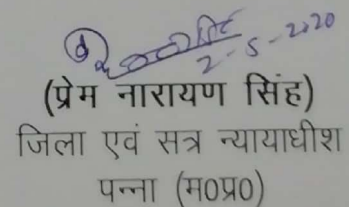 2-5-2020
(प्रेम नारायण सिंह)
जिला एवं सत्र न्यायाधीश
पन्ना (म0प्र0)